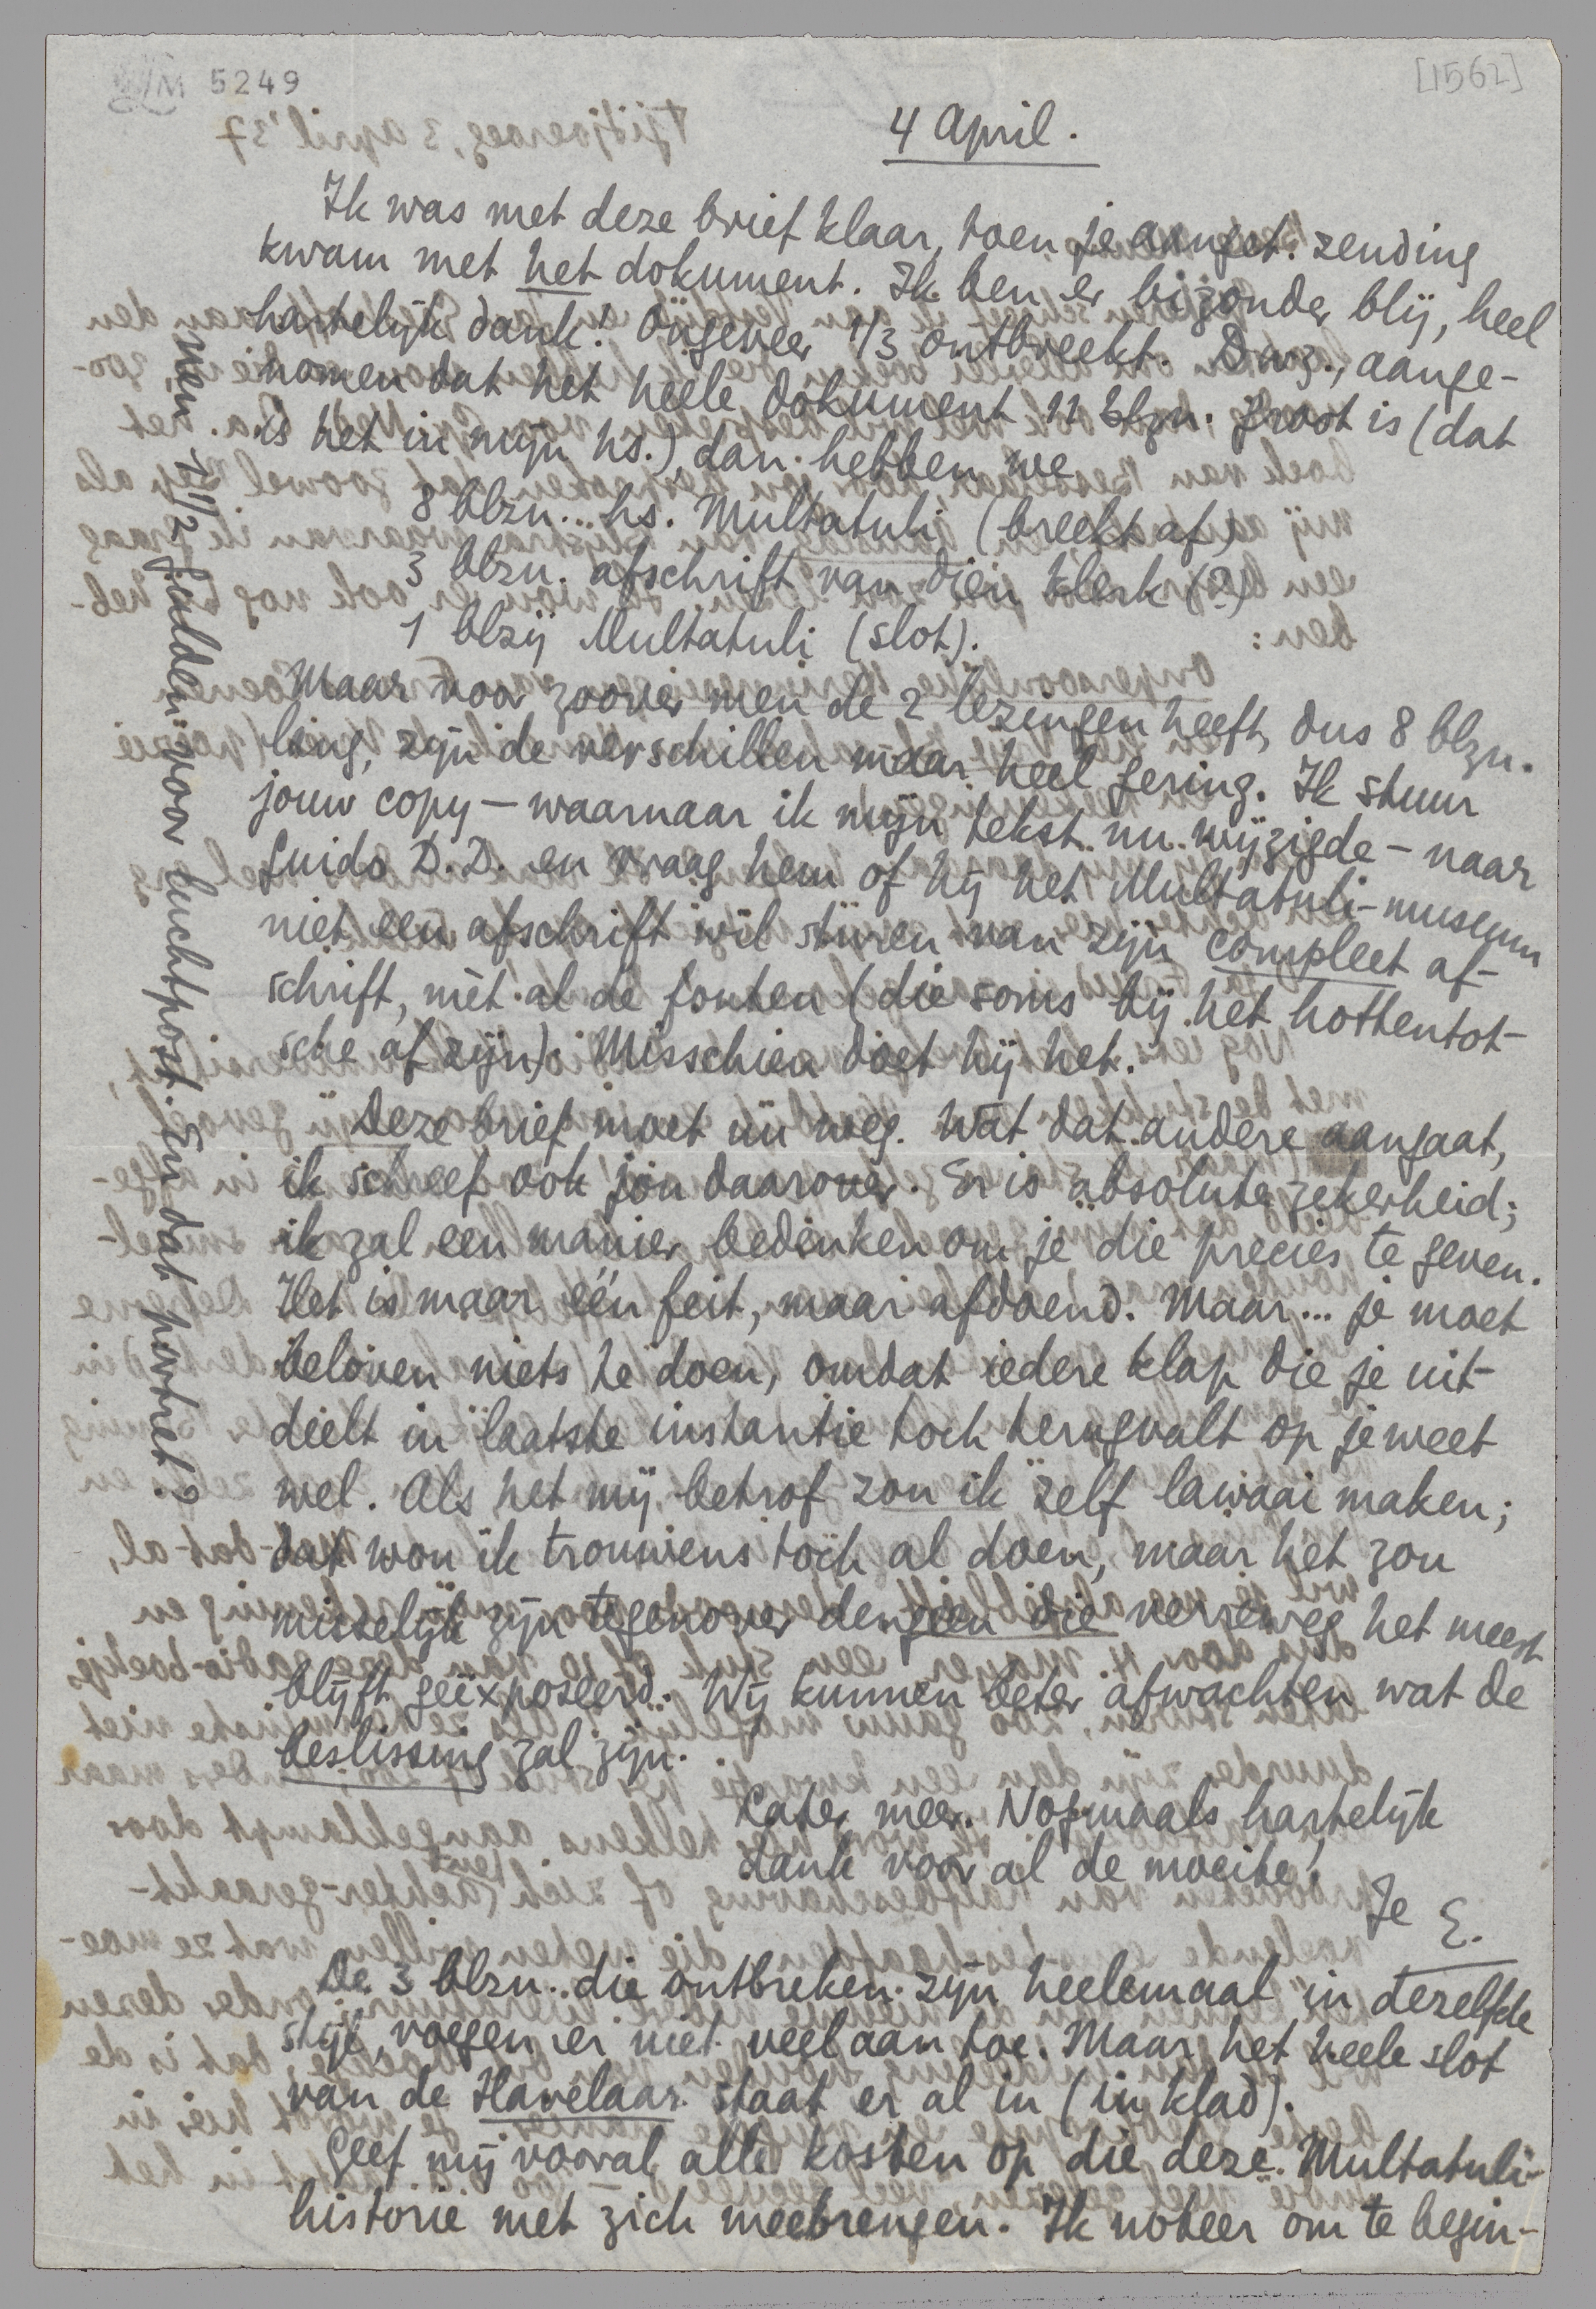 LM 5249
[1562]
4 April.
Ik was met deze brief klaar, toen je aanget. zending
kwam met het dokument. Ik ben er bizonder blij, heel
hartelijk dank! Ongeveer 1/3 ontbreekt. D.w.z., aange-
nomen dat het heele dokument 11 blzn. groot is (dat
is het in mijn hs.) dan hebben we
8 blzn. hs. Multatuli (breekt af)
3 blzn. afschrift van dien klerk (?)
1 blzij Multatuli (slot).
Maar voor zoover men de 2 lezingen heeft, dus 8 blzn.
lang, zijn de verschillen maar heel gering. Ik stuur
jouw copy – waarnaar ik mijn tekst nu wijzigde – naar
Guido D.D. en vraag hem of hij het Multatuli-museum
niet een afschrift wil sturen van zijn compleet af-
schrift, mèt al de fouten (die soms bij het hottentot-
sche af zijn). Misschien doet hij het.
Deze brief moet nu weg. Wat dat andere aangaat,
ik schreef ook jou daarover. Er is absolute zekerheid;
ik zal een manier bedenken om je die precies te geven.
Het is maar één feit, maar afdoend. Maar... je moet
beloven niets te doen, omdat iedere klap die je uit-
deelt in laatste instantie toch terugvalt op je weet
wel. Als het mij betrof zou ik zelf lawaai maken;
dat wou ik trouwens tòch al doen, maar het zou
misselijk zijn tegenover dengeen die verreweg het meest
blijft geëxposeerd. Wij kunnen beter afwachten wat de
beslissing zal zijn.
Later meer. Nogmaals hartelijk
dank voor al de moeite!
Je E.
De 3 blzn. die ontbreken zijn heelemaal in dezelfde
stijl, voegen er niet veel aan toe. Maar het heele slot
van de Havelaar staat er al in (in klad).
Geef mij vooral alle kosten op die deze Multatuli-
historie met zich meebrengen. Ik noteer om te begin-
nen 7 1/2 gulden voor luchtpost. En dat portret?